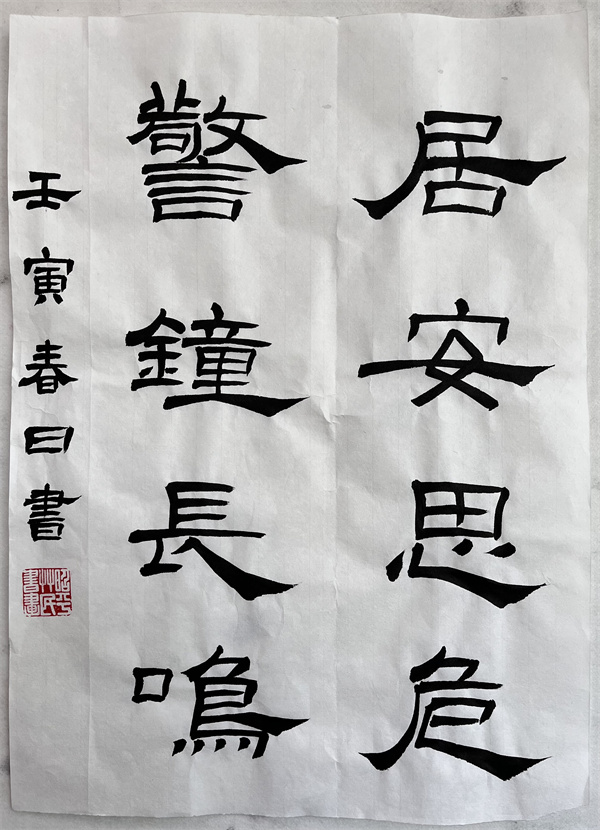 居安思危
警鐘長鳴
壬寅春日書